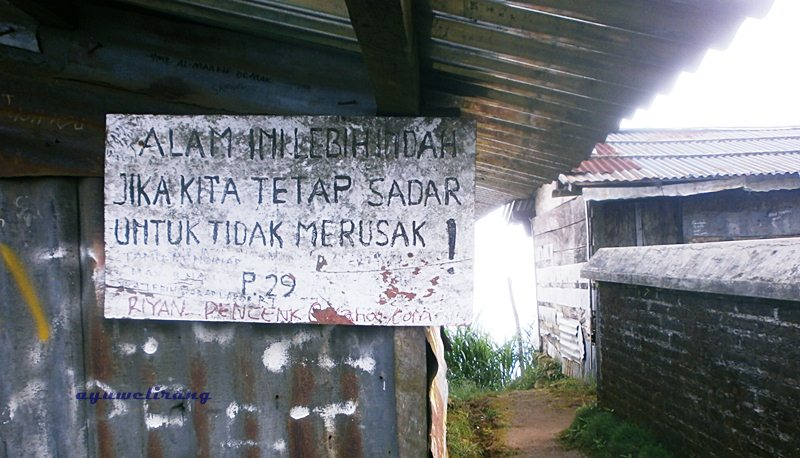 ALAM INI LEBIH INDAH
JIKA KITA TETAP SADAR
UNTUK TIDAK MERUSAK !
P.29
RIYAN PENCENK
ayuwelirang